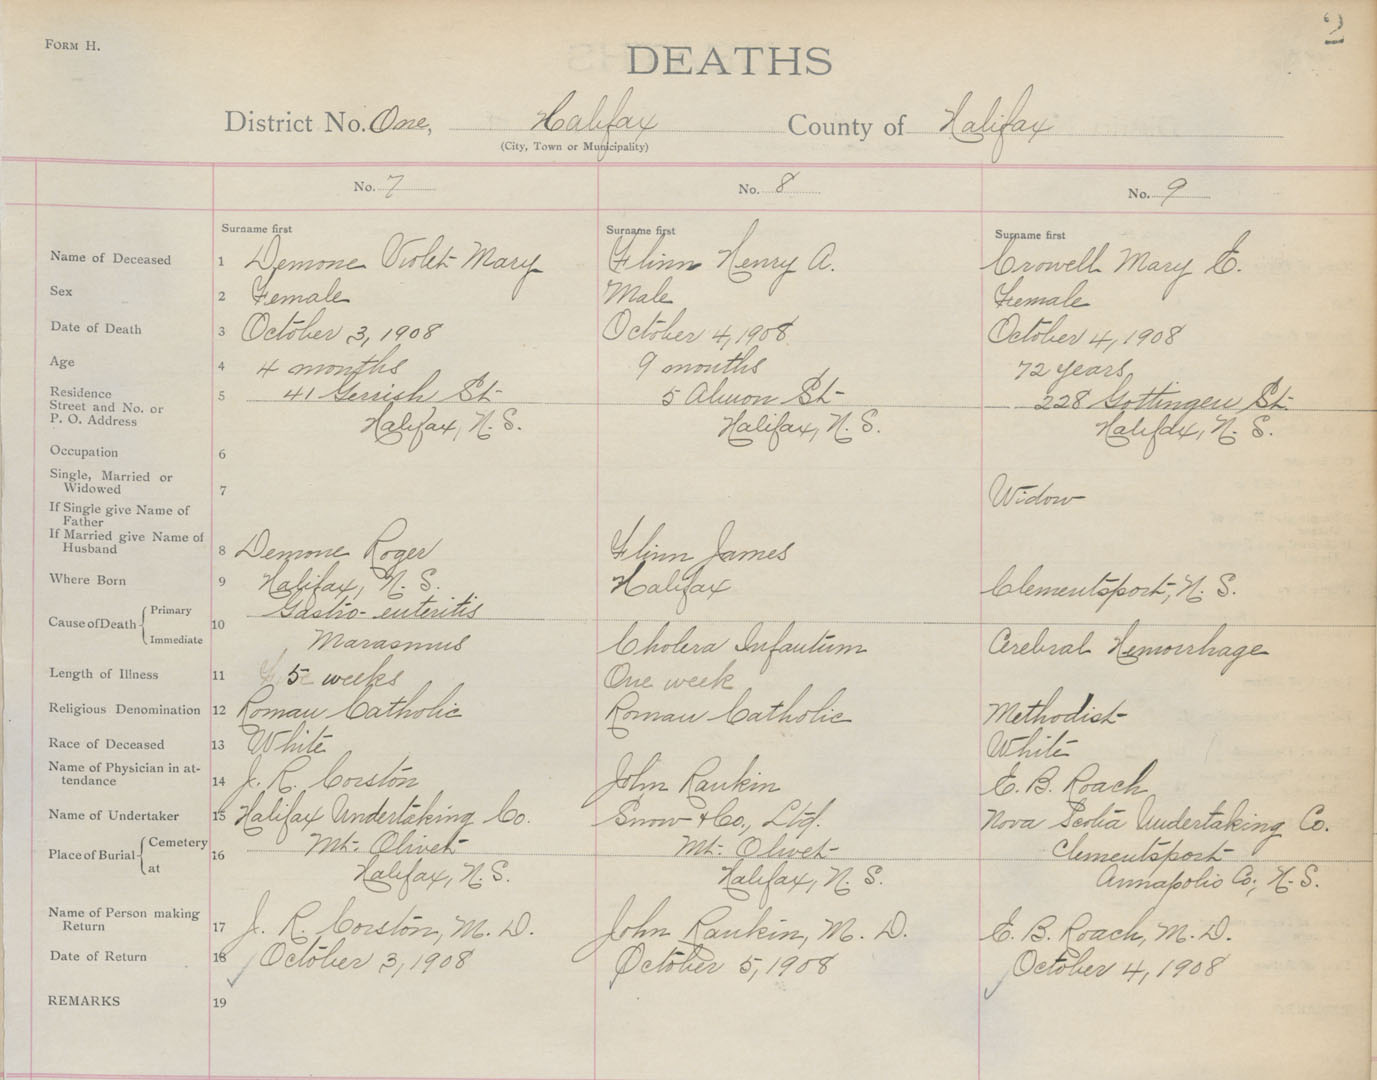 2
FORM H.
DEATHS
District No. One, Halifax County of Halifax
(City, Town or Municipality)
No. 7 No. 8 No. 9
Surname first Surname first Surname first
Name of Deceased 1 Demone Violet Mary Flinn Henry A. Crowell Mary E.
Sex 2 Female Male Female
Date of Death 3 October 3, 1908 October 4, 1908 October 4, 1908
Age 4 4 months 9 months 72 years
Residence
Street and No. or 5 41 Gerrish St 5 Almon St 228 Gottingen St.
P. O. Address Halifax, N. S. Halifax, N. S. Halifax, N. S.
Occupation 6
Single, Married or
Widowed 7 Widow
If Single give Name of
Father
If Married give Name of
Husband 8 Demone Roger Flinn James
Where Born 9 Halifax, N. S. Halifax Clementsport, N. S.
Cause of Death Primary 10 Gastro-enteritis
Immediate Marasmus Cholera Infantum Cerebral Hemorrhage
Length of Illness 11 5 weeks One week
Religious Denomination 12 Roman Catholic Roman Catholic Methodist
Race of Deceased 13 White White
Name of Physician in at-
tendance 14 J. R. Corston John Rankin E. B. Roach
Name of Undertaker 15 Halifax Undertaking Co. Snow & Co., Ltd. Nova Scotia Undertaking Co.
Place of Burial Cemetery 16 Mt. Olivet Mt. Olivet Clementsport
at Halifax, N. S. Halifax, N. S. Annapolis Co., N. S.
Name of Person making
Return 17 J. R. Corston, M. D. John Rankin, M. D. E. B. Roach, M. D.
Date of Return 18 October 3, 1908 October 5, 1908 October 4, 1908
REMARKS 19